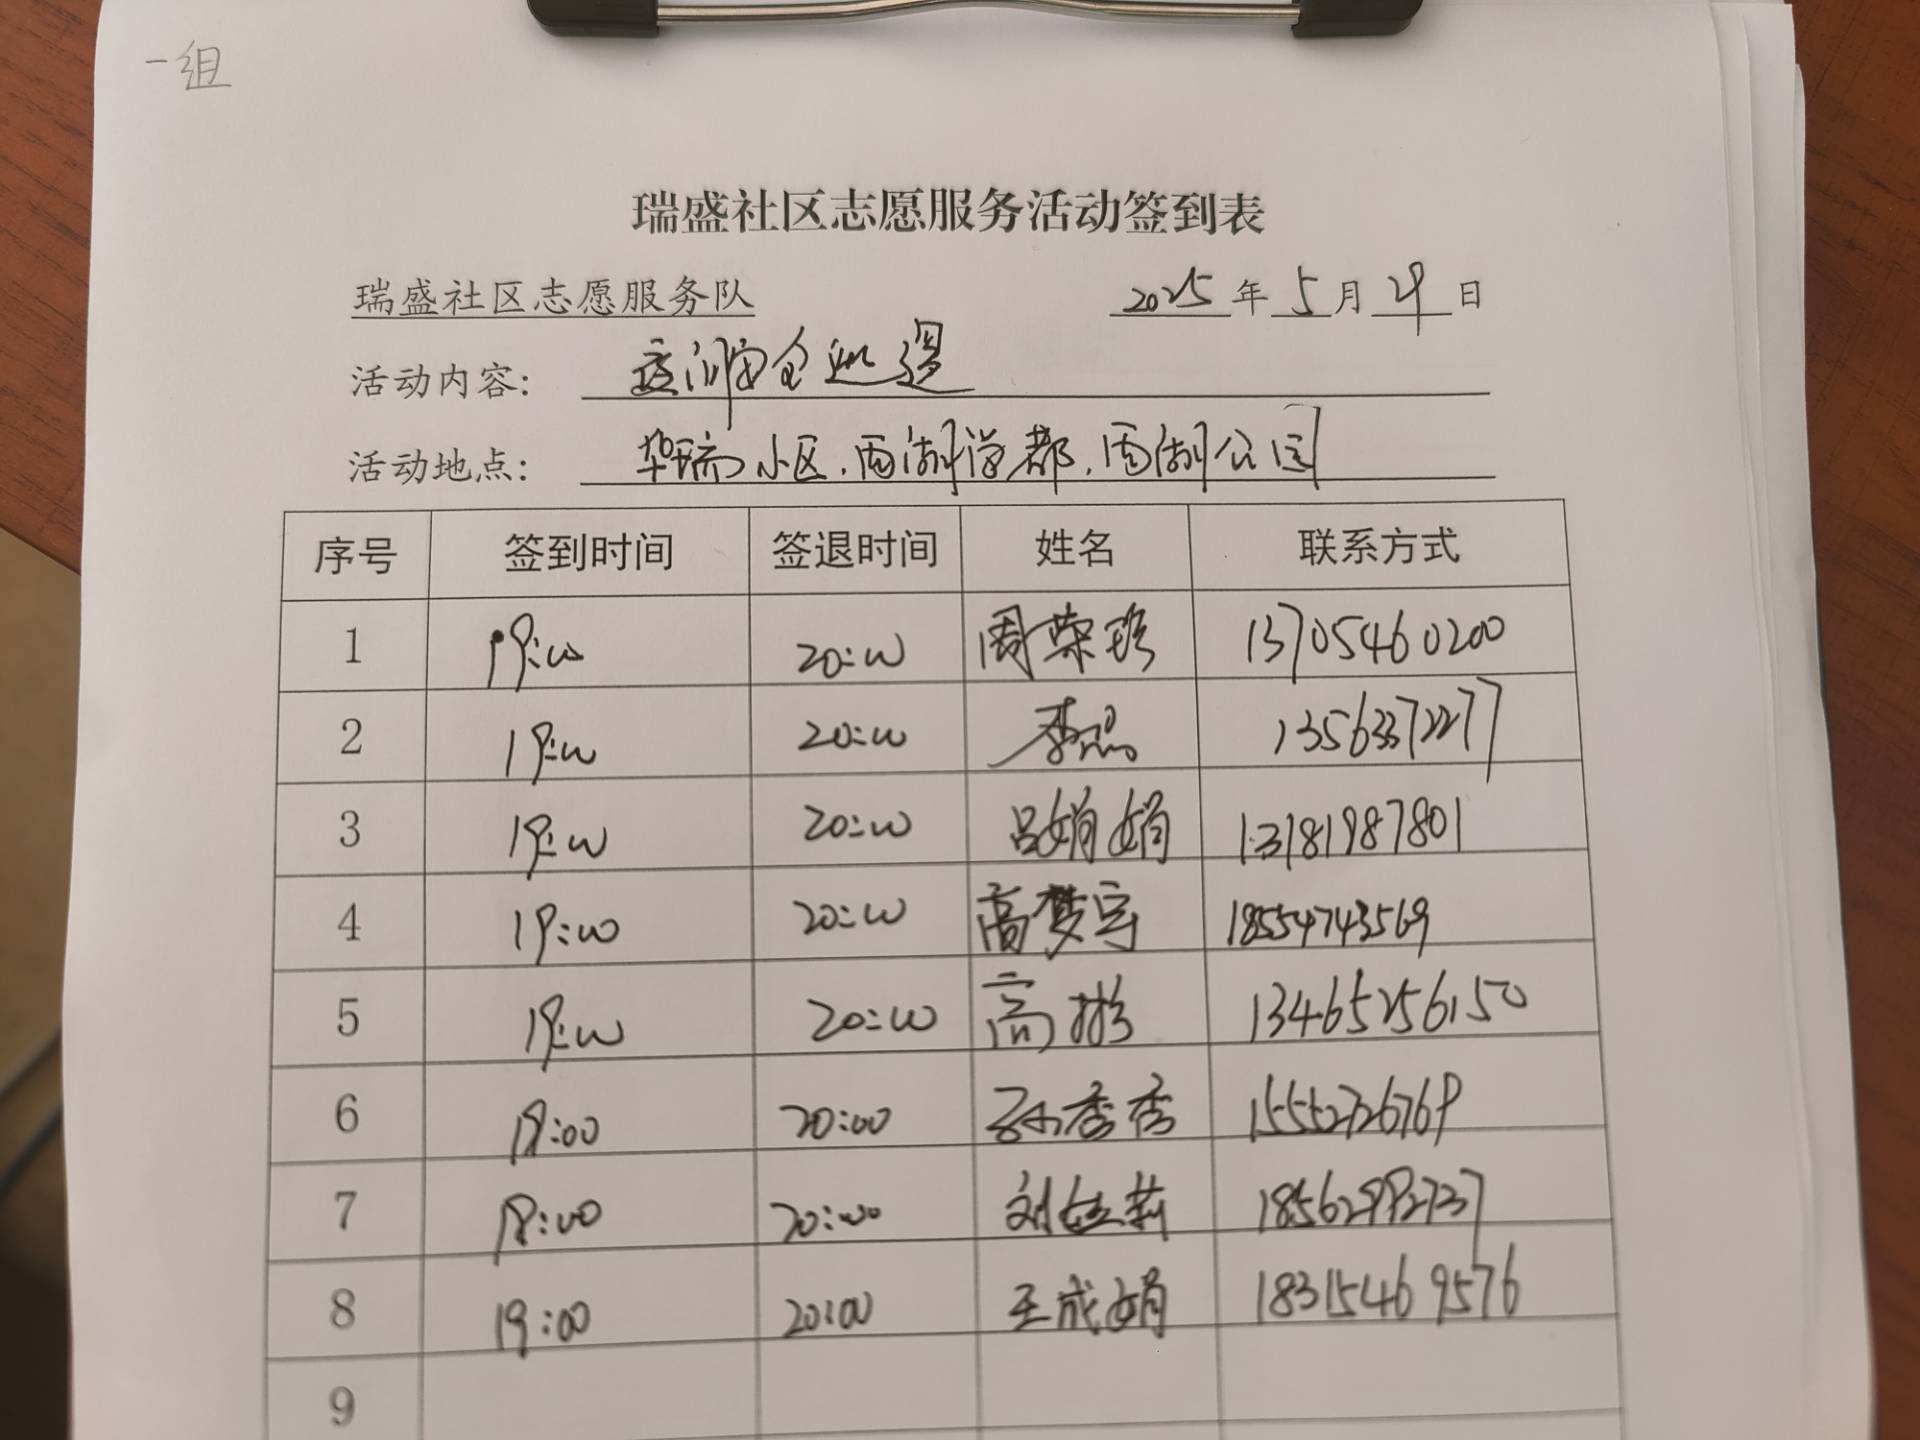 一组
瑞盛社区志愿服务活动签到表
瑞盛社区志愿服务队 2025年5月29日
活动内容: 夜间安全巡逻
活动地点: 华瑞小区.西湖学都.西湖公园
序号 签到时间 签退时间 姓名 联系方式
1 19:00 20:00 周荣珍 13705460200
2 19:00 20:00 李 13563372277
3 19:00 20:00 吕娟娟 13181987801
4 19:00 20:00 高梦宇 18554743569
5 19:00 20:00 高彬 13465256150
6 19:00 20:00 孙秀秀 15552726769
7 19:00 20:00 刘莉 18562992737
8 19:00 20:00 王成娟 18315469576
9